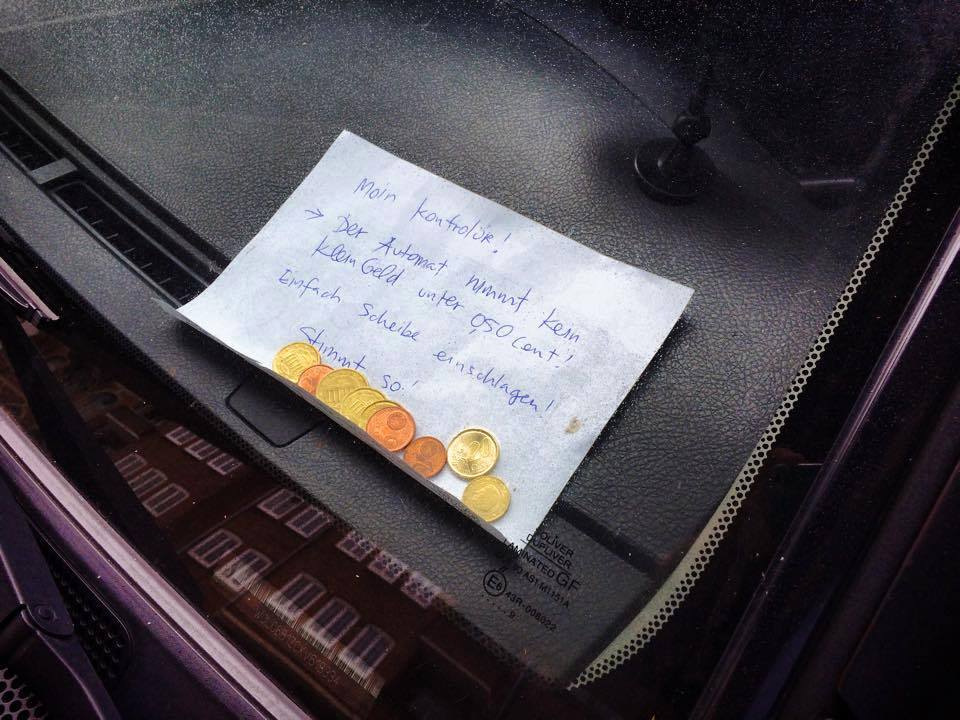 Moin Kontrolör!
→ Der Automat nimmt kein
KleinGeld unter 050 Cent!
Einfach Scheibe einschlagen!
Stimmt so!
OLIVER
DUPLIVER
LAMINATED GF
AS1 M1151A
E6 43R-008022